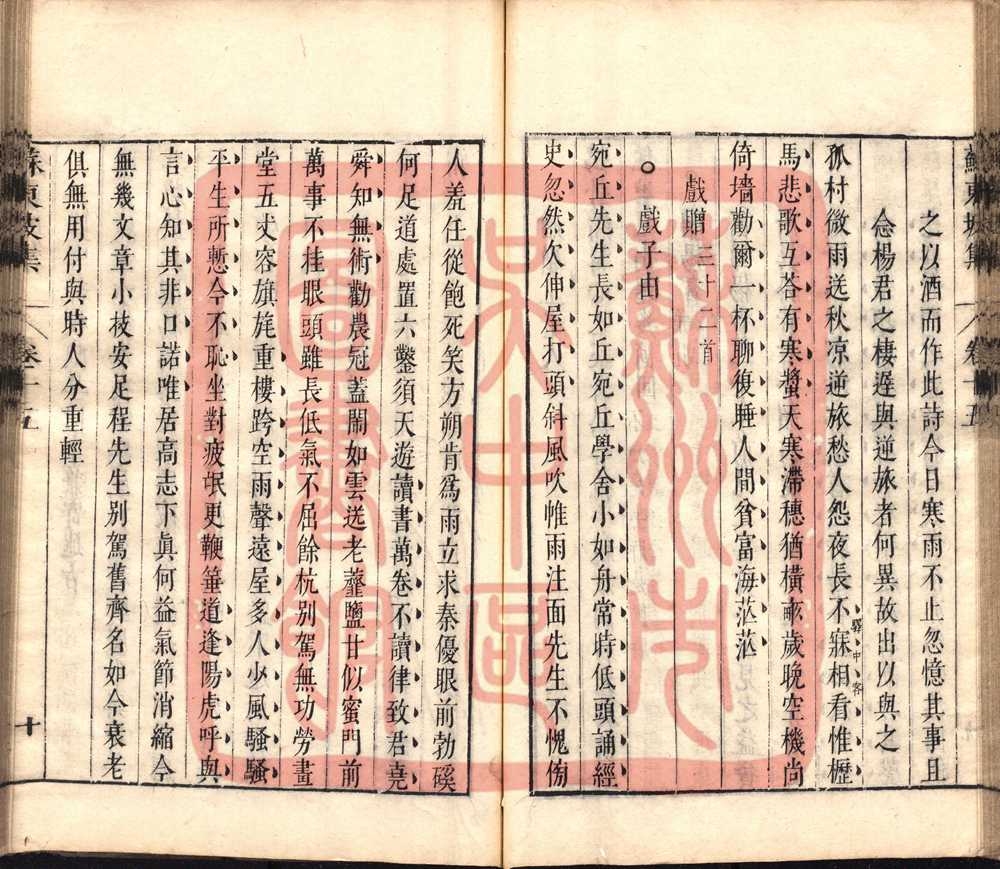 蘇東坡集 卷十五
之以酒而作此詩今日寒雨不止忽憶其事且
念楊君之棲遲與逆旅者何異故出以與之
孤村微雨送秋凉逆旅愁人怨夜長不寐相看惟櫪
驛中客
馬悲歌互答有寒螿天寒滯穗猶橫畝歲晚空機尚
倚墻勸爾一杯聊復睡人間貧富海茫茫
戲贈三十二首
○戲子由
宛丘先生長如丘宛丘學舍小如舟常時低頭誦經
史忽然欠伸屋打頭斜風吹帷雨注面先生不愧傍
人羞任從飽死笑方朔肯爲雨立求秦優眼前勃磎
何足道處置六鑿須天遊讀書萬卷不讀律致君堯
舜知無術勸農冠蓋閙如雲送老虀鹽甘似蜜門前
萬事不挂眼頭雖長低氣不屈餘杭别駕無功勞畫
堂五丈容旗旄重樓跨空雨聲遠屋多人少風騷騷
平生所慙今不恥坐對疲氓更鞭箠道逢陽虎呼與
言心知其非口諾唯居高志下眞何益氣節消縮今
無幾文章小技安足程先生别駕舊齊名如今衰老
俱無用付與時人分重輕
蘇東坡集 卷十五 十
蘇州市
吴中區
圖書館